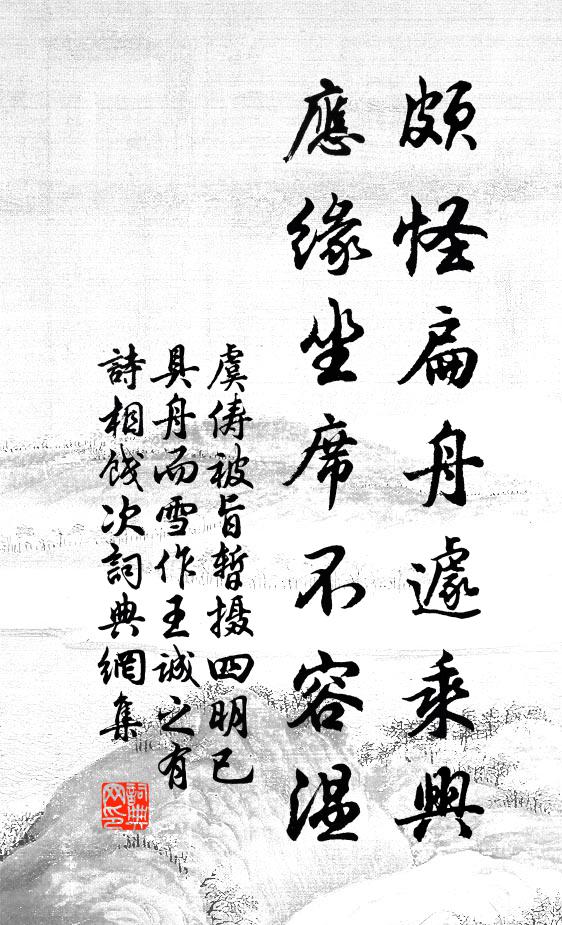 頗怪扁舟遽乘興
應緣坐席不容溫
虞儔被旨暫摄四明已
具舟而雪作王誠之有
詩相餞次詞典網集
詞典
网印